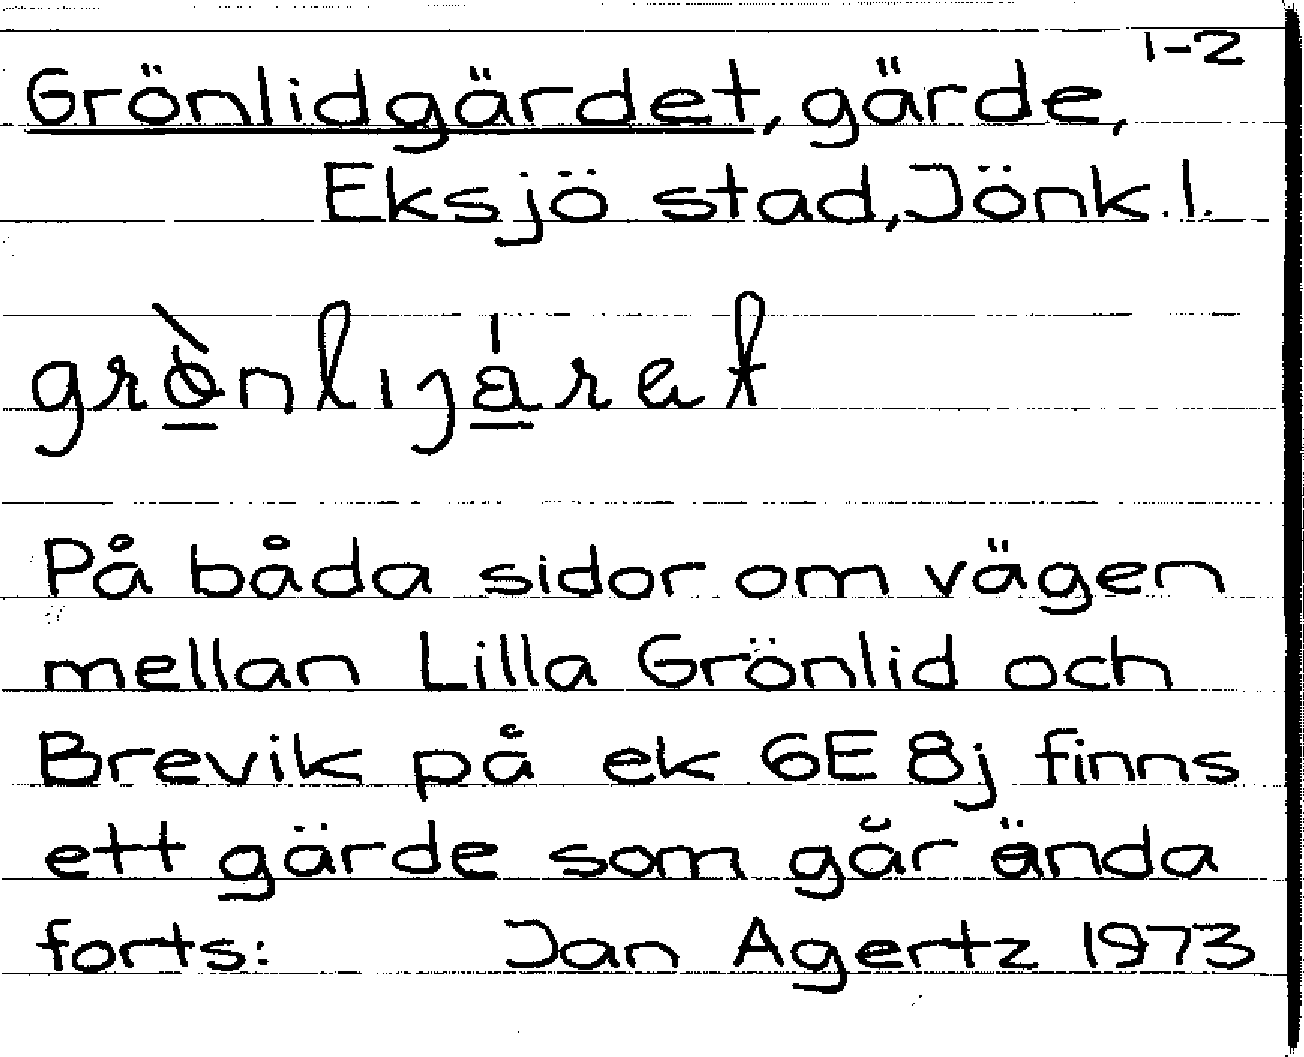 1-2
Grönlidgärdet, gärde,
Eksjö stad, Jönk. l.
På båda sidor om vägen
mellan Lilla Grönlid och
Brevik på ek 6E 8j finns
ett gärde som går ända
forts: Jan Agertz 1973